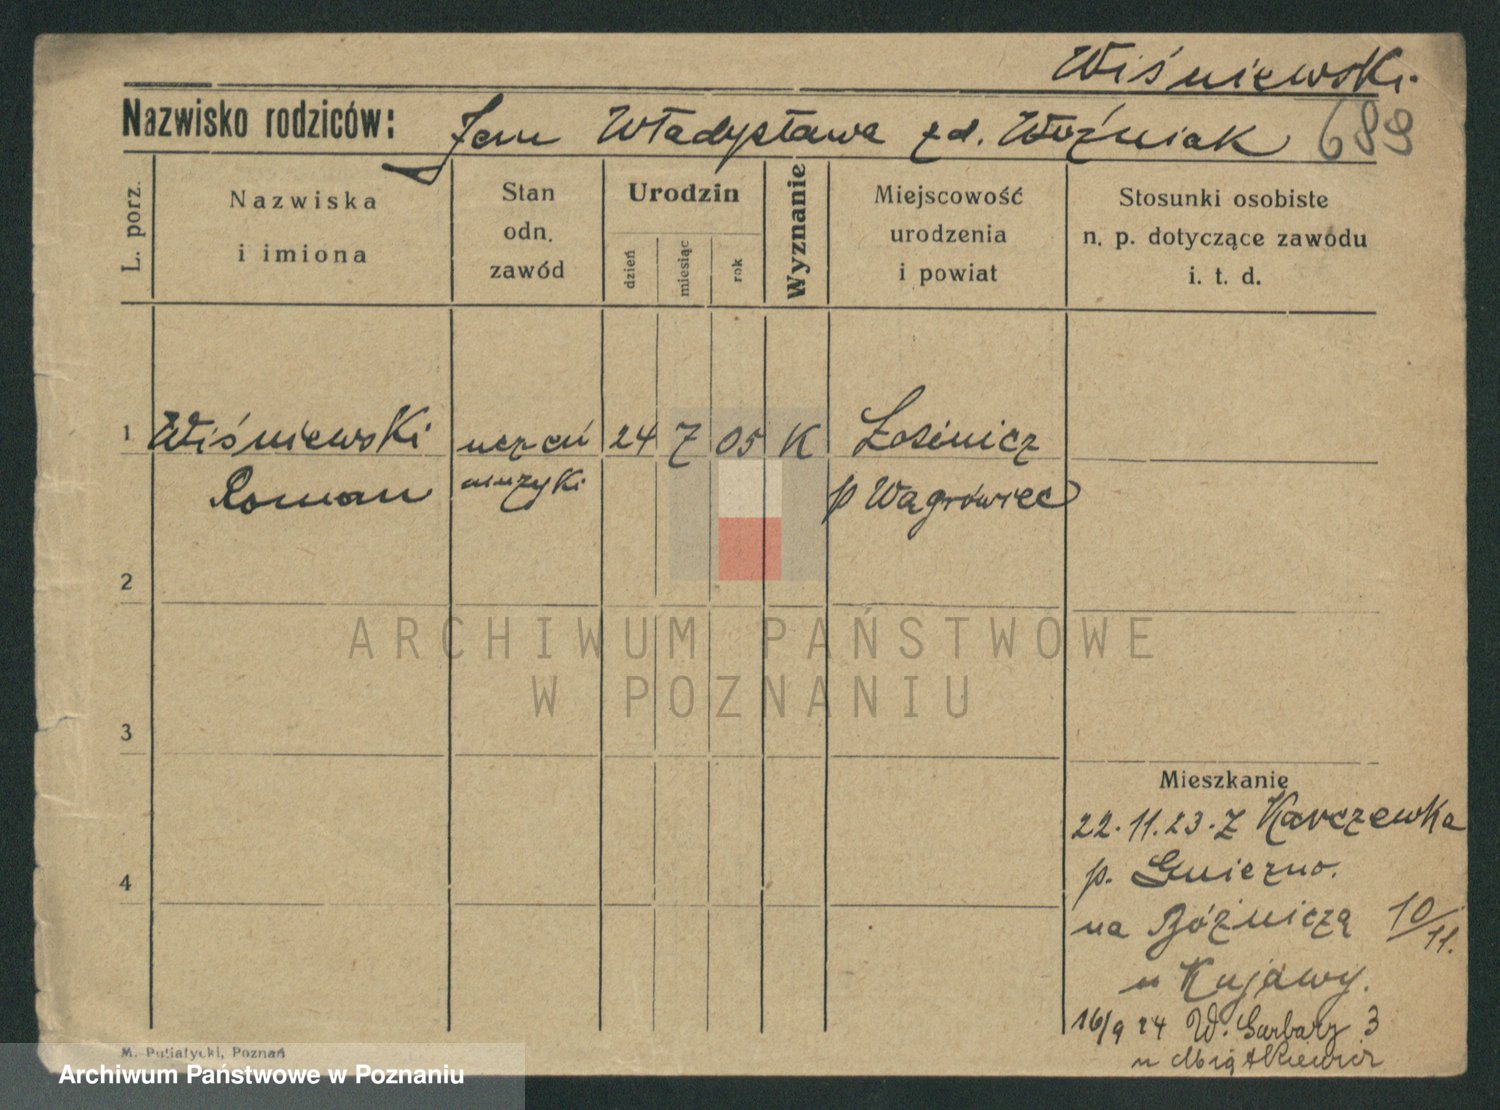 Wiśniewski.
Nazwisko rodziców: Jan Władysława zd. Woźniak 689
L. porz.
Nazwiska
i imiona
Stan
odn.
zawód
Urodzin
dzień
miesiąc
rok
Wyznanie
Miejscowość
urodzenia
i powiat
Stosunki osobiste
n. p. dotyczące zawodu
i. t. d.
1 Wiśniewski uczeń 24 7 05 K Łosinicz
Roman muzyki p Wągrówiec
2
3
4
Mieszkanie
22.11.23. z Karczewka
p. Gniezno.
na Bóżniczą 10/11.
u Kujawy.
16/9 24 W. Garbary 3
u
M. Putiatycki, Poznań
ARCHIWUM PAŃSTWOWE
W POZNANIU
Archiwum Państwowe w Poznaniu